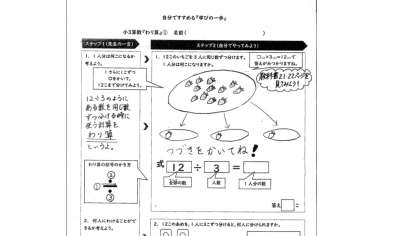 自分ですすめる「学びの一歩」
小3算数「わり算」① 名前(　　　)
ステップ1（先生の一言）
ステップ2（自分でやってみよう）
1、1人分は何こになるか
考えよう。
12÷3のように
ある数を同じ数
ずつ分ける時に
使う計算を
わり算
という。
わり算の記号のかき方
1、12このいちごを3人に同じ数ずつ分けます。
1人分は何こになりますか。
つづきをかいてね！
式 12 ÷ 3 =
全部の数
人数
1人分の数
答え
2、何人にわけることがで
きるか考えよう。
2、12このあめを、1人に3こずつ分けると、何人に分けられますか。